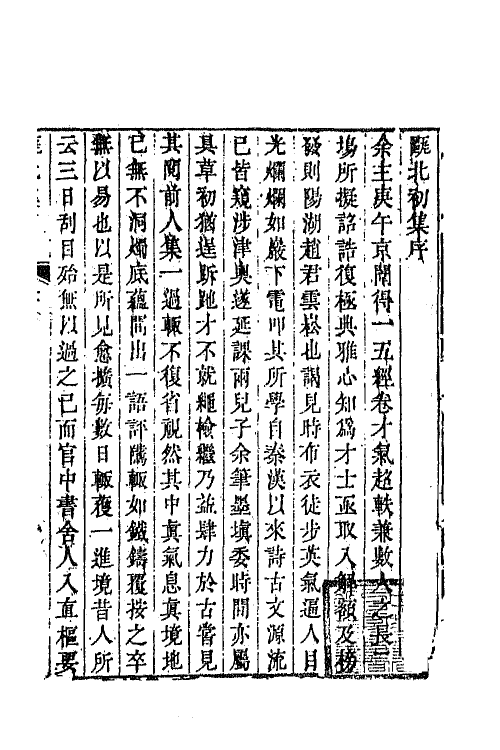 甌北初集序
余主庚午京闈得一五經卷才氣超軼兼數人之長二
塲所擬詔誥復極典雅心知爲才士亟取入解額及榜
發則陽湖趙君雲崧也謁見時布衣徒步英氣逼人目
光爛爛如巖下電叩其所學自秦漢以來詩古文源流
已皆窺涉津奥遂延課兩兒子余筆墨塡委時間亦屬
具草初猶逞跅跑才不就繩檢繼乃益肆力於古嘗見
其閱前人集一過輒不復省視然其中眞氣息眞境地
已無不洞燭底蘊間出一語評隲輒如鐵鑄覆按之卒
無以易也以是所見愈擴每數日輒覆一進境昔人所
云三日刮目殆無以過之已而官中書舍人入直樞要